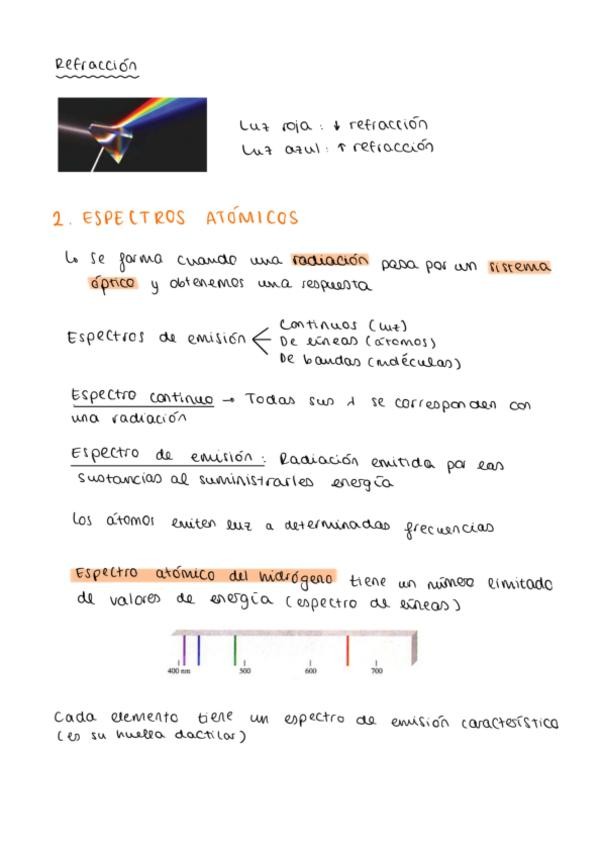 Refracción
Luz roja : ↓ refracción
Luz azul : ↑ refracción
2. ESPECTROS ATÓMICOS
↳ se forma cuando una radiación pasa por un sistema
óptico y obtenemos una respuesta
Espectros de emisión < Continuos (luz)
De líneas (átomos)
De bandas (moléculas)
Espectro continuo → Todas sus λ se corresponden con
una radiación
Espectro de emisión : Radiación emitida por las
sustancias al suministrarles energía
Los átomos emiten luz a determinadas frecuencias
Espectro atómico del hidrógeno tiene un número limitado
de valores de energía (espectro de líneas)
400 nm 500 600 700
Cada elemento tiene un espectro de emisión característico
(es su huella dactilar)